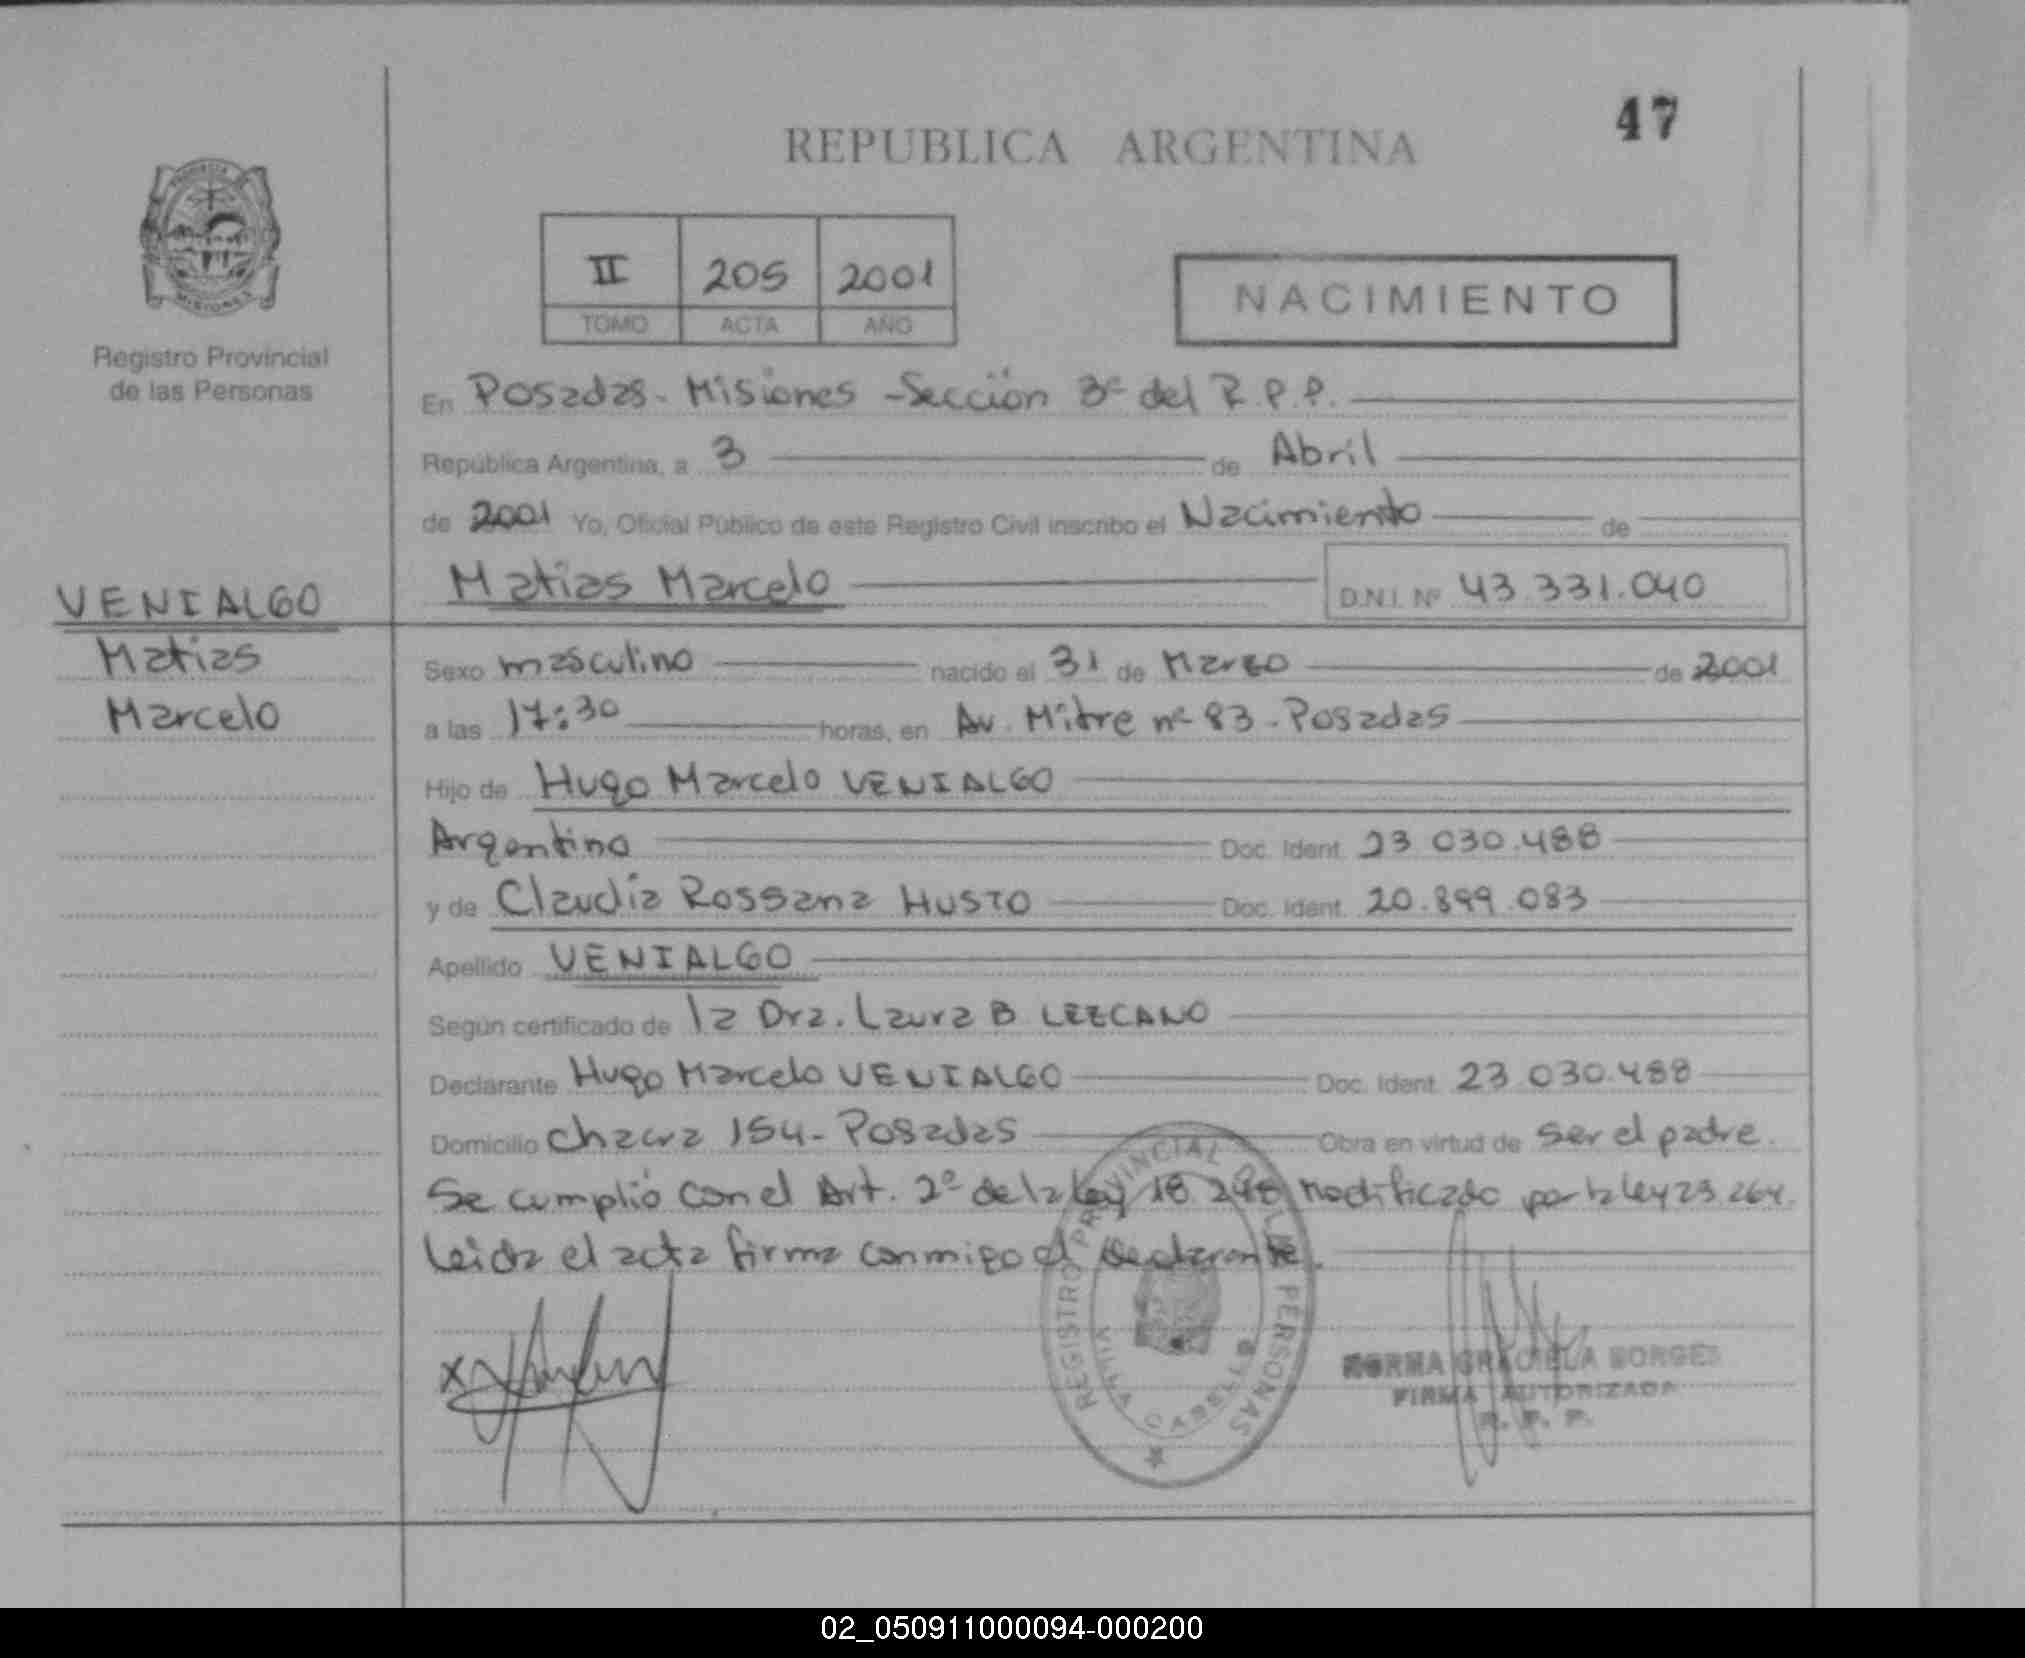 47
REPUBLICA ARGENTINA
MISIONES
Registro Provincial
de las Personas
II 205 2001
TOMO ACTA AÑO
NACIMIENTO
En Posadas - Misiones - Sección 3ª del R.P.P.
República Argentina, a 3 de Abril
de 2001 Yo, Oficial Público de este Registro Civil inscribo el Nacimiento de
Matias Marcelo D.N.I. Nº 43.331.040
VENIALGO
Matias
Marcelo
Sexo masculino nacido el 31 de Marzo de 2001
a las 17:30 horas, en Av. Mitre nº 83 - Posadas
Hijo de Hugo Marcelo VENIALGO
Argentino Doc. Ident. 23 030.488
y de Claudia Rossana HUSTO Doc. Ident. 20.899.083
Apellido VENIALGO
Según certificado de la Dra. Laura B LEZCANO
Declarante Hugo Marcelo VENIALGO Doc. Ident. 23 030.488
Domicilio chacra 154 - Posadas Obra en virtud de ser el padre.
Se cumplió con el Art. 2º de la ley 18 248 modificado por la ley 23.264.
Leida el acta firma conmigo el declarante.
REGISTRO PROVINCIAL DE LAS PERSONAS
NORMA GRACIELA BORGES
FIRMA AUTORIZADA
R. P. P.
02_050911000094-000200